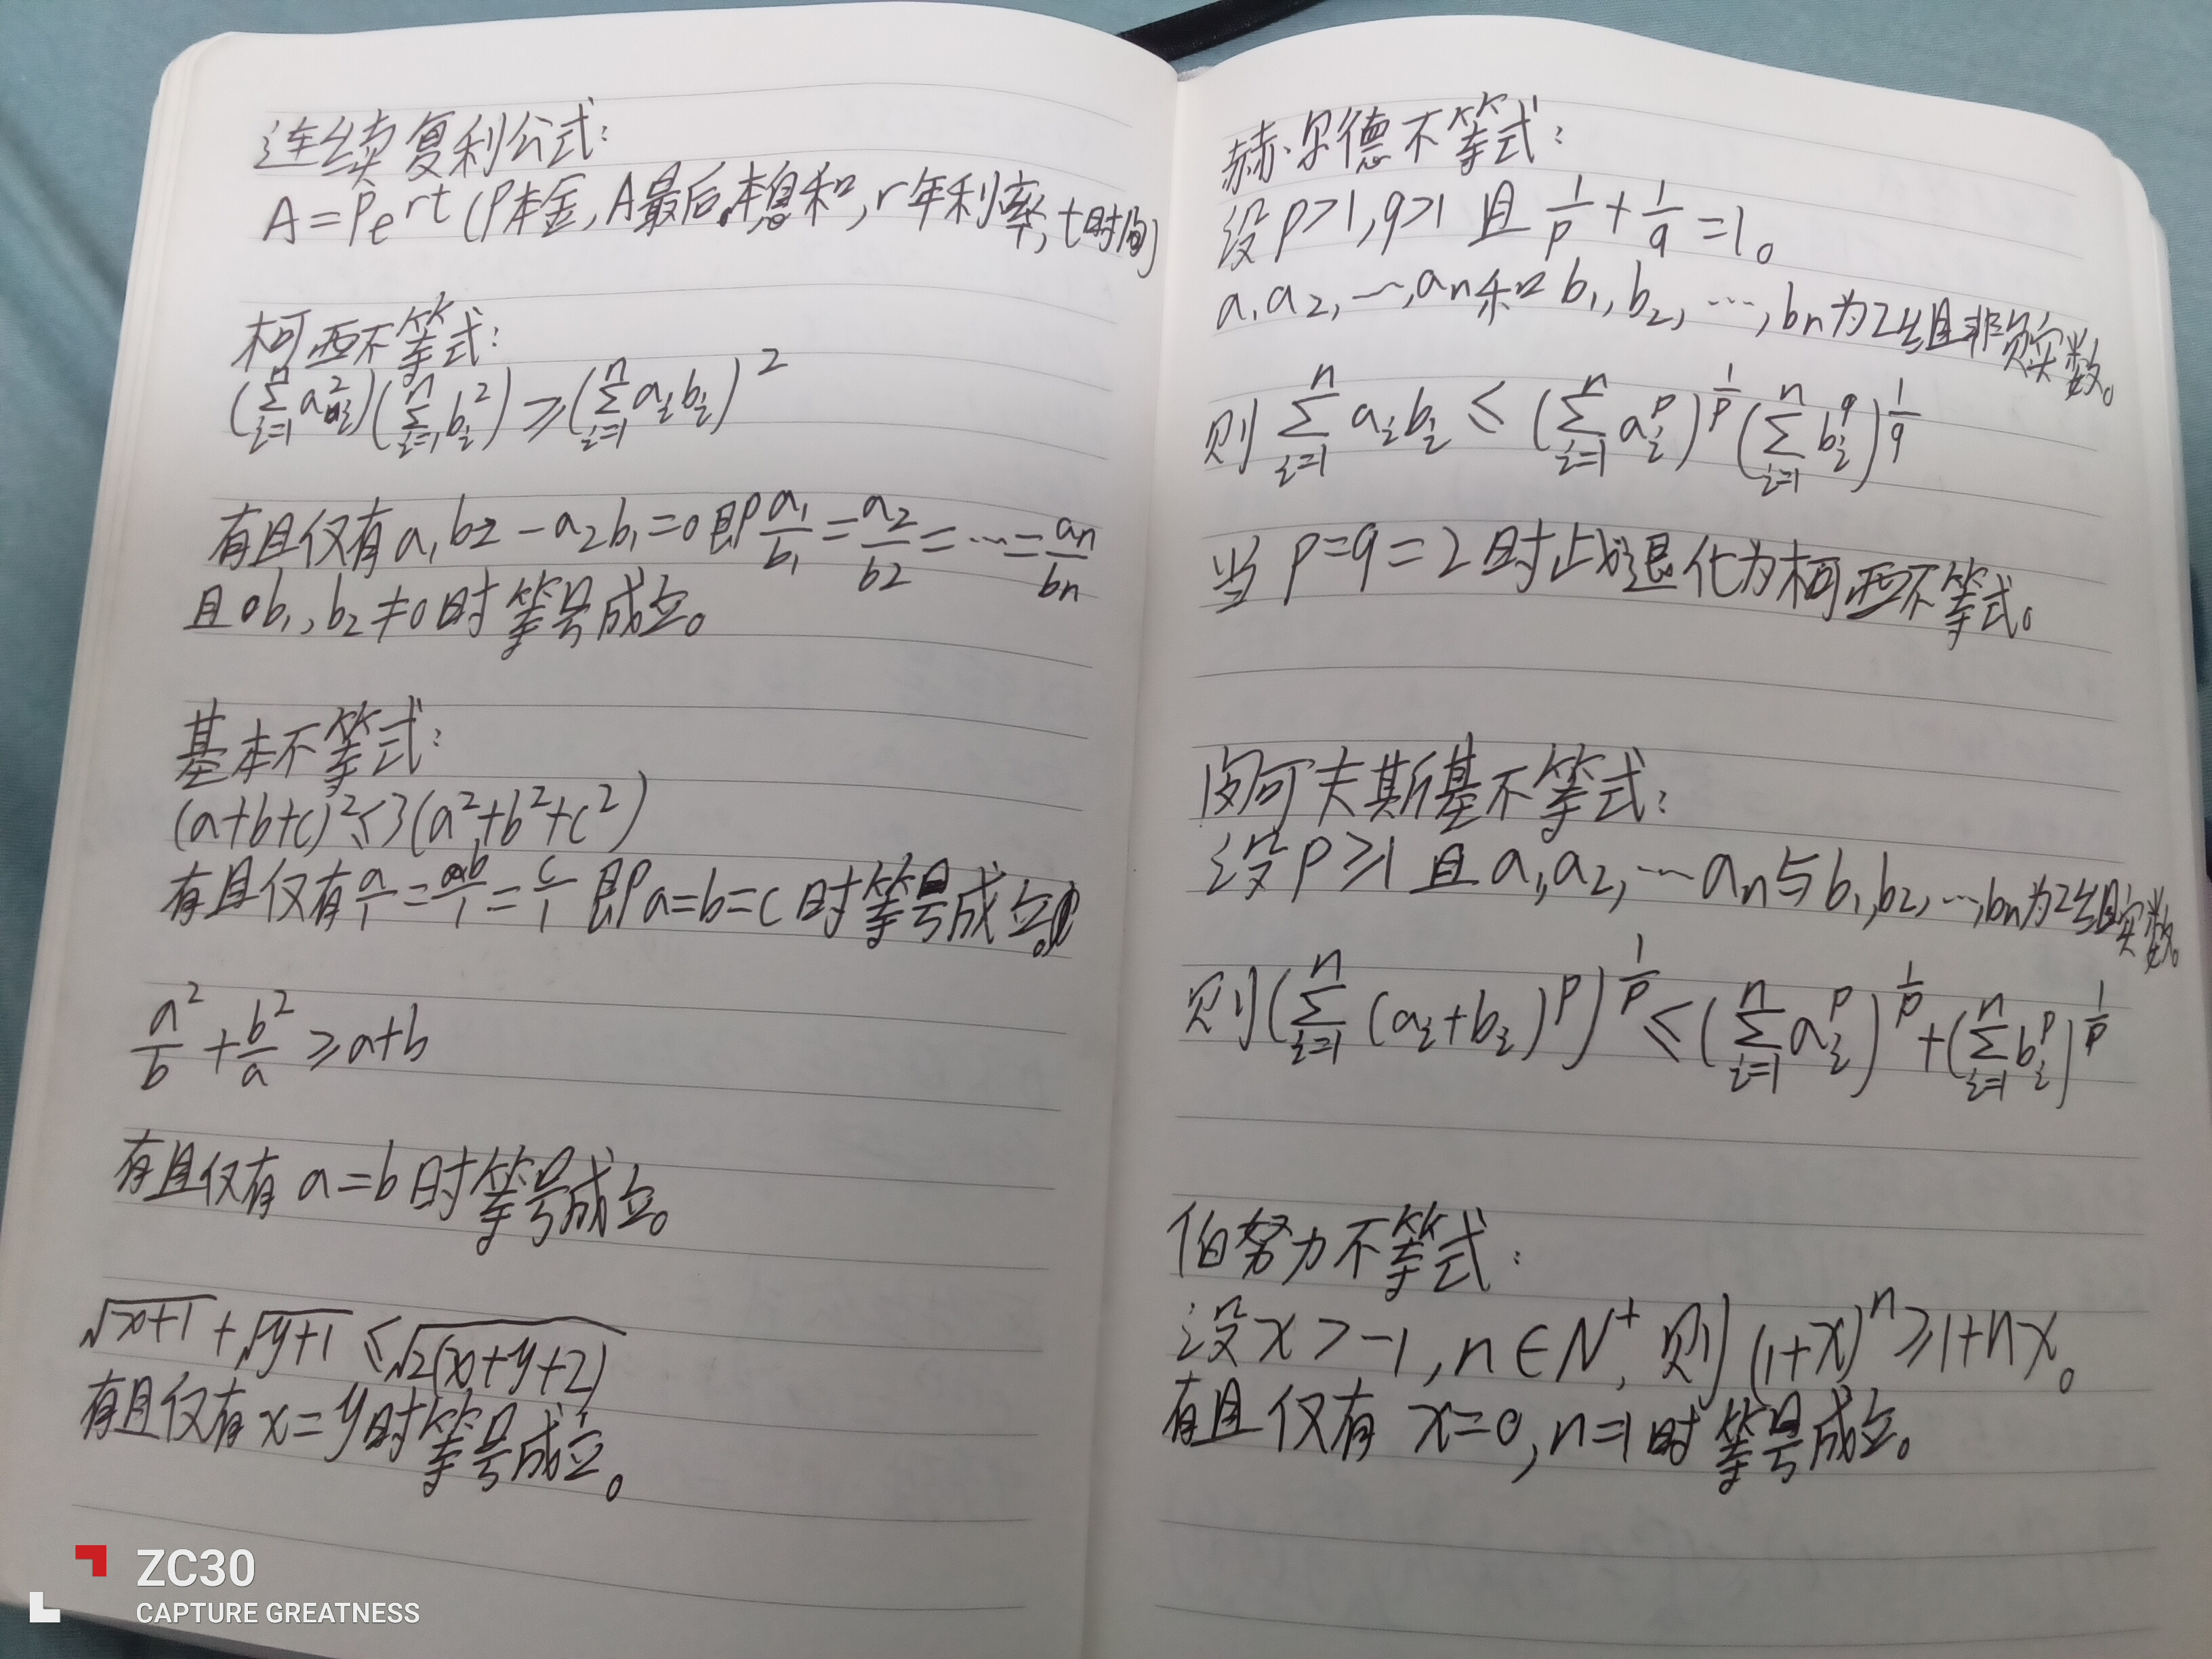 连续复利公式:
A=Pe^rt (P本金,A最后本息和,r年利率,t时间)
柯西不等式:
(∑_{i=1}^{n} a_i^2)(∑_{i=1}^{n} b_i^2)≥(∑_{i=1}^{n} a_i b_i)^2
有且仅有a₁b₂-a₂b₁=0即a₁/b₁=a₂/b₂=…=an/bn
且b₁,b₂≠0时等号成立。
基本不等式:
(a+b+c)²≤3(a²+b²+c²)
有且仅有a/1=b/1=c/1即a=b=c时等号成立。
a²/b+b²/a≥a+b
有且仅有a=b时等号成立。
√(x+1)+√(y+1)≤√(2(x+y+2))
有且仅有x=y时等号成立。
赫尔德不等式:
设p>1,q>1且1/p+1/q=1。
a₁a₂,…,an和b₁,b₂,…,bn为2组非负实数。
则∑_{i=1}^{n} a_i b_i≤(∑_{i=1}^{n} a_i^p)^{1/p}(∑_{i=1}^{n} b_i^q)^{1/q}
当p=q=2时此式退化为柯西不等式。
闵可夫斯基不等式:
设p≥1且a₁,a₂,…an与b₁,b₂,…,bn为2组实数。
则(∑_{i=1}^{n} (a_i+b_i)^p)^{1/p}≤(∑_{i=1}^{n} a_i^p)^{1/p}+(∑_{i=1}^{n} b_i^p)^{1/p}
伯努力不等式:
设x>-1,n∈N⁺,则(1+x)^n≥1+nx。
有且仅有x=0,n=1时等号成立。
ZC30
CAPTURE GREATNESS